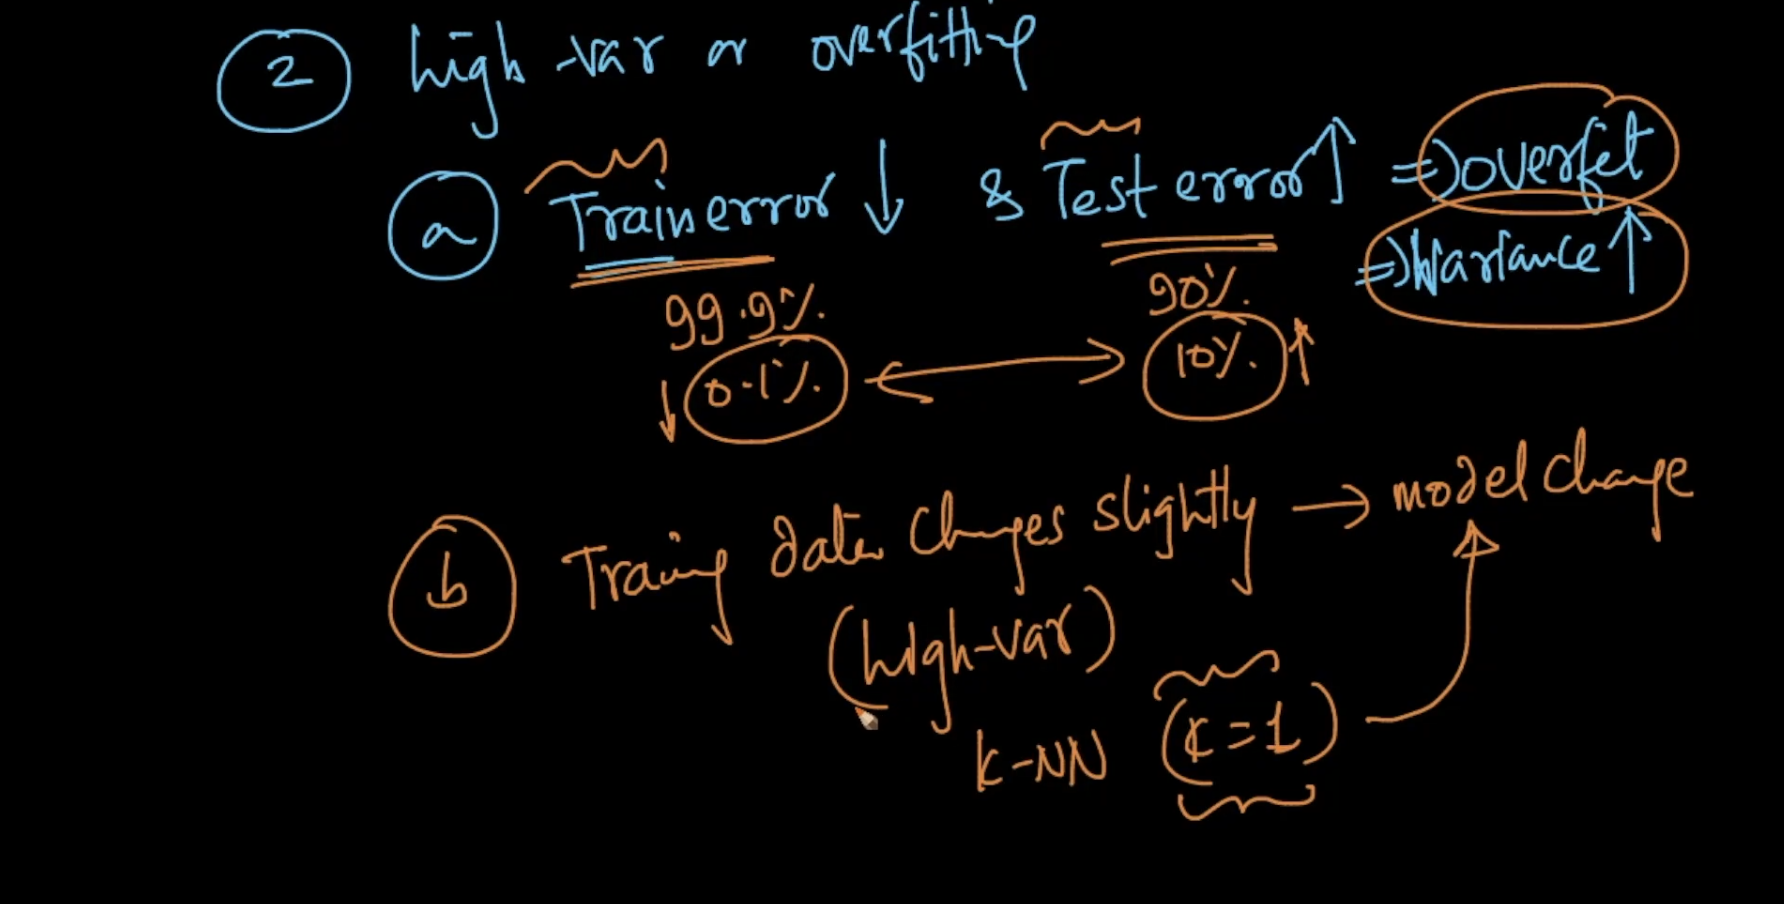 2 high-var or overfitting
a Train error ↓ & Test error ↑ => overfit
=> Variance ↑
99.9% 90%
↓ 0.1% ↔ 10% ↑
b Traing data changes slightly → model change
(high-var)
K-NN (K=1)